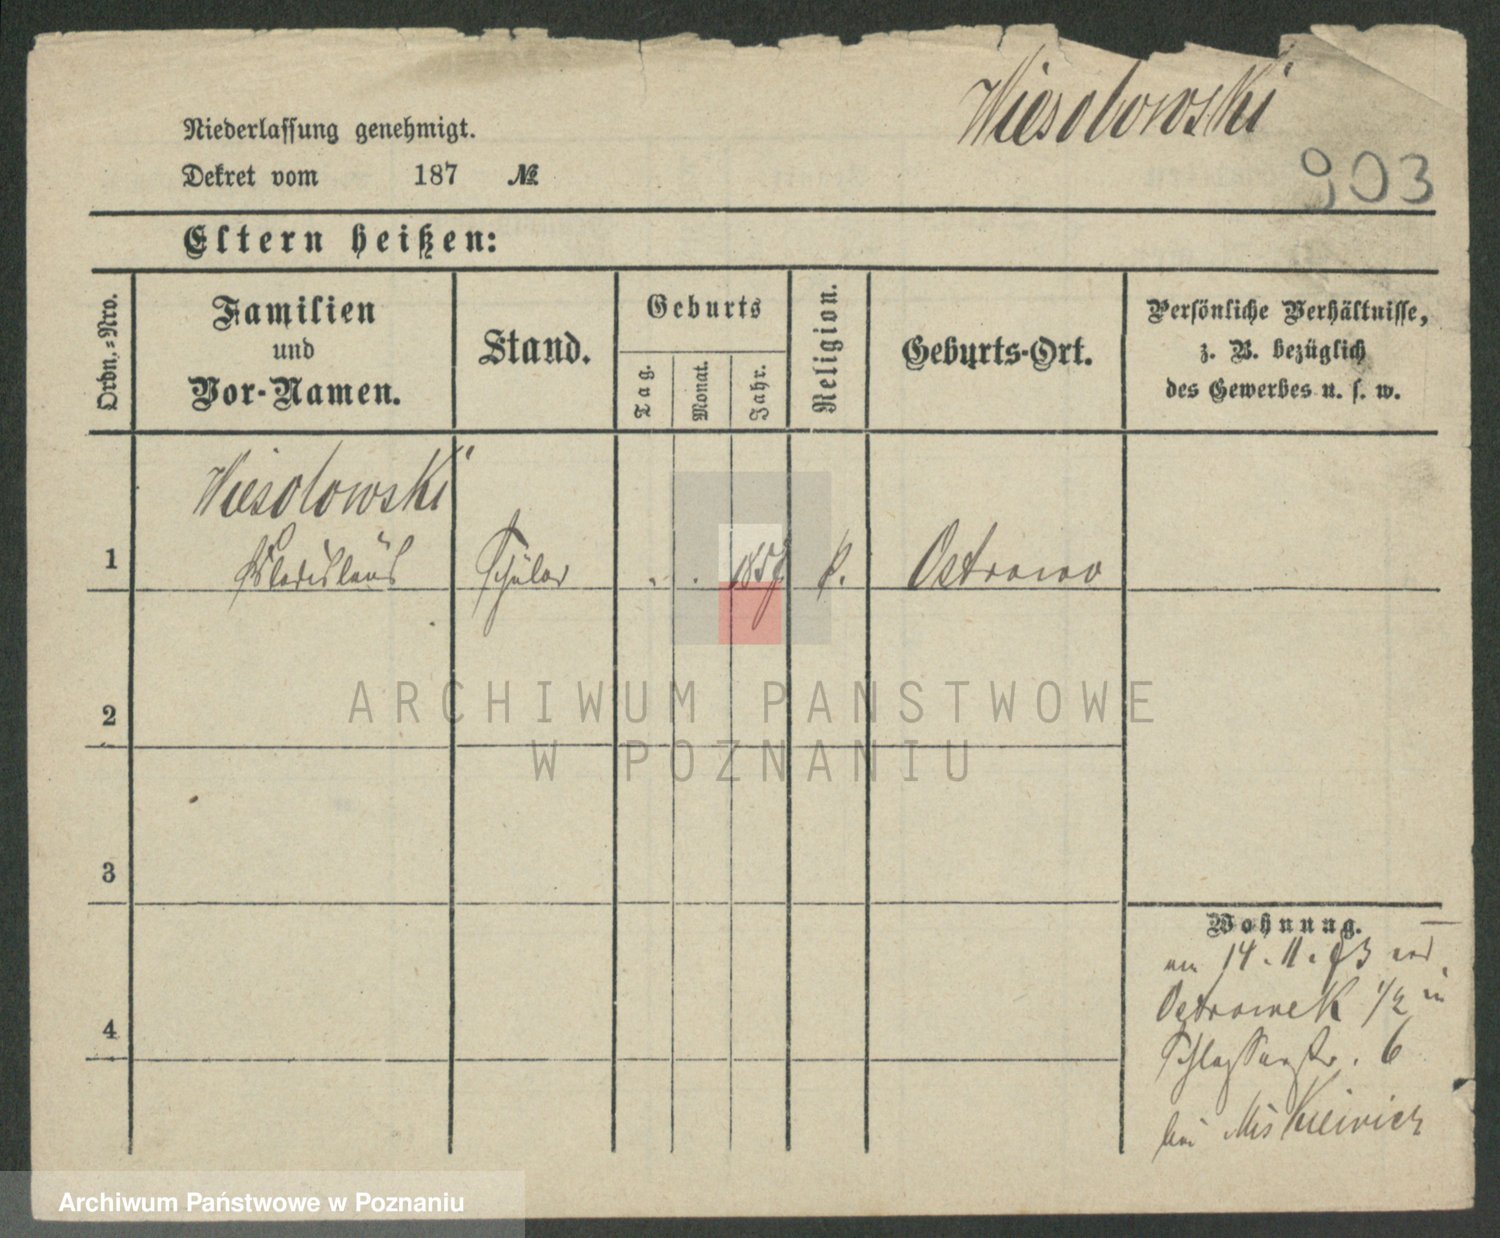 Wiesolowski
903
Niederlassung genehmigt.
Dekret vom 187 №
Eltern heißen:
Ordn.-Nro.
Familien
und
Vor-Namen.
Stand.
Geburts
Tag.
Monat.
Jahr.
Religion.
Geburts-Ort.
Persönliche Verhältnisse,
z. B. bezüglich
des Gewerbes u. s. w.
Wiesolowski
1 Wladislaus Schüler 1857 k. Ostrowo
2
3
4
Wohnung.
14. 11. 73
Ostrowek 1/2 in
Schlosserstr. 6
bei Miskiewicz
ARCHIWUM PANSTWOWE
W POZNANIU
Archiwum Państwowe w Poznaniu